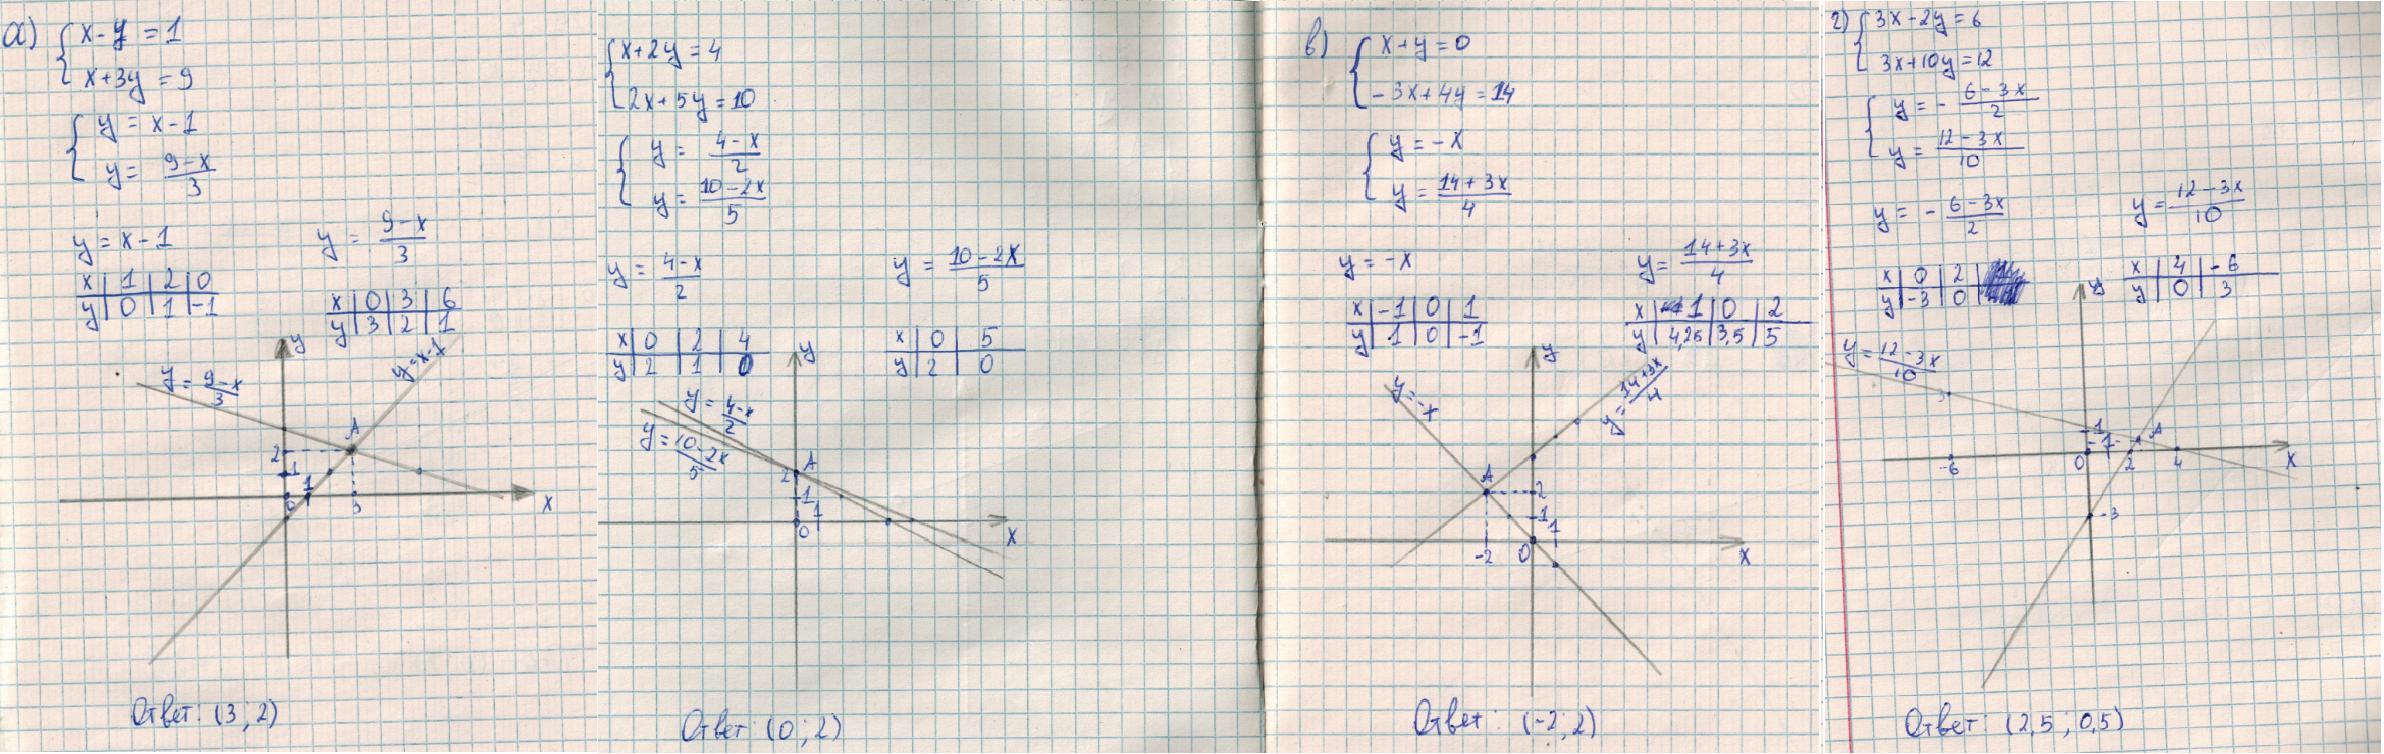 а) { x - y = 1
x + 3y = 9
{ y = x - 1
y = (9 - x)/3
y = x - 1
y = (9 - x)/3
x | 1 | 2 | 0
y | 0 | 1 | -1
x | 0 | 3 | 6
y | 3 | 2 | 1
y
y = (9 - x)/3
y = x - 1
A
2
1
0
1
3
x
Ответ: (3; 2)
{ x + 2y = 4
2x + 5y = 10
{ y = (4 - x)/2
y = (10 - 2x)/5
y = (4 - x)/2
y = (10 - 2x)/5
x | 0 | 2 | 4
y | 2 | 1 | 0
x | 0 | 5
y | 2 | 0
y
y = (4 - x)/2
y = (10 - 2x)/5
A
2
1
1
0
x
Ответ: (0; 2)
в) { x + y = 0
-3x + 4y = 14
{ y = -x
y = (14 + 3x)/4
y = -x
y = (14 + 3x)/4
x | -1 | 0 | 1
y | 1 | 0 | -1
x | 1 | 0 | 2
y | 4,25 | 3,5 | 5
y
y = -x
y = (14 + 3x)/4
A
2
1
1
-2
0
x
Ответ: (-2; 2)
г) { 3x - 2y = 6
3x + 10y = 12
{ y = - (6 - 3x)/2
y = (12 - 3x)/10
y = - (6 - 3x)/2
y = (12 - 3x)/10
x | 0 | 2
y | -3 | 0
x | 4 | -6
y | 0 | 3
y
y = (12 - 3x)/10
3
1
1
A
-6
0
2
4
x
-3
Ответ: (2,5; 0,5)